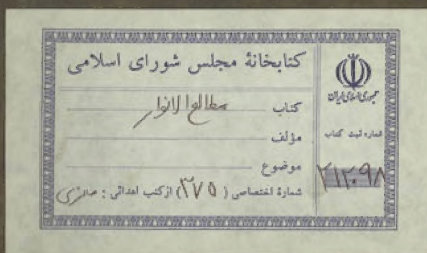 کتابخانهٔ مجلس شورای اسلامی
جمهوری اسلامی ایران
کتاب مطالع الانوار
مؤلف
شماره ثبت کتاب
موضوع
شمارهٔ اختصاصی ( ۳۷۵ ) از کتب اهدائی :